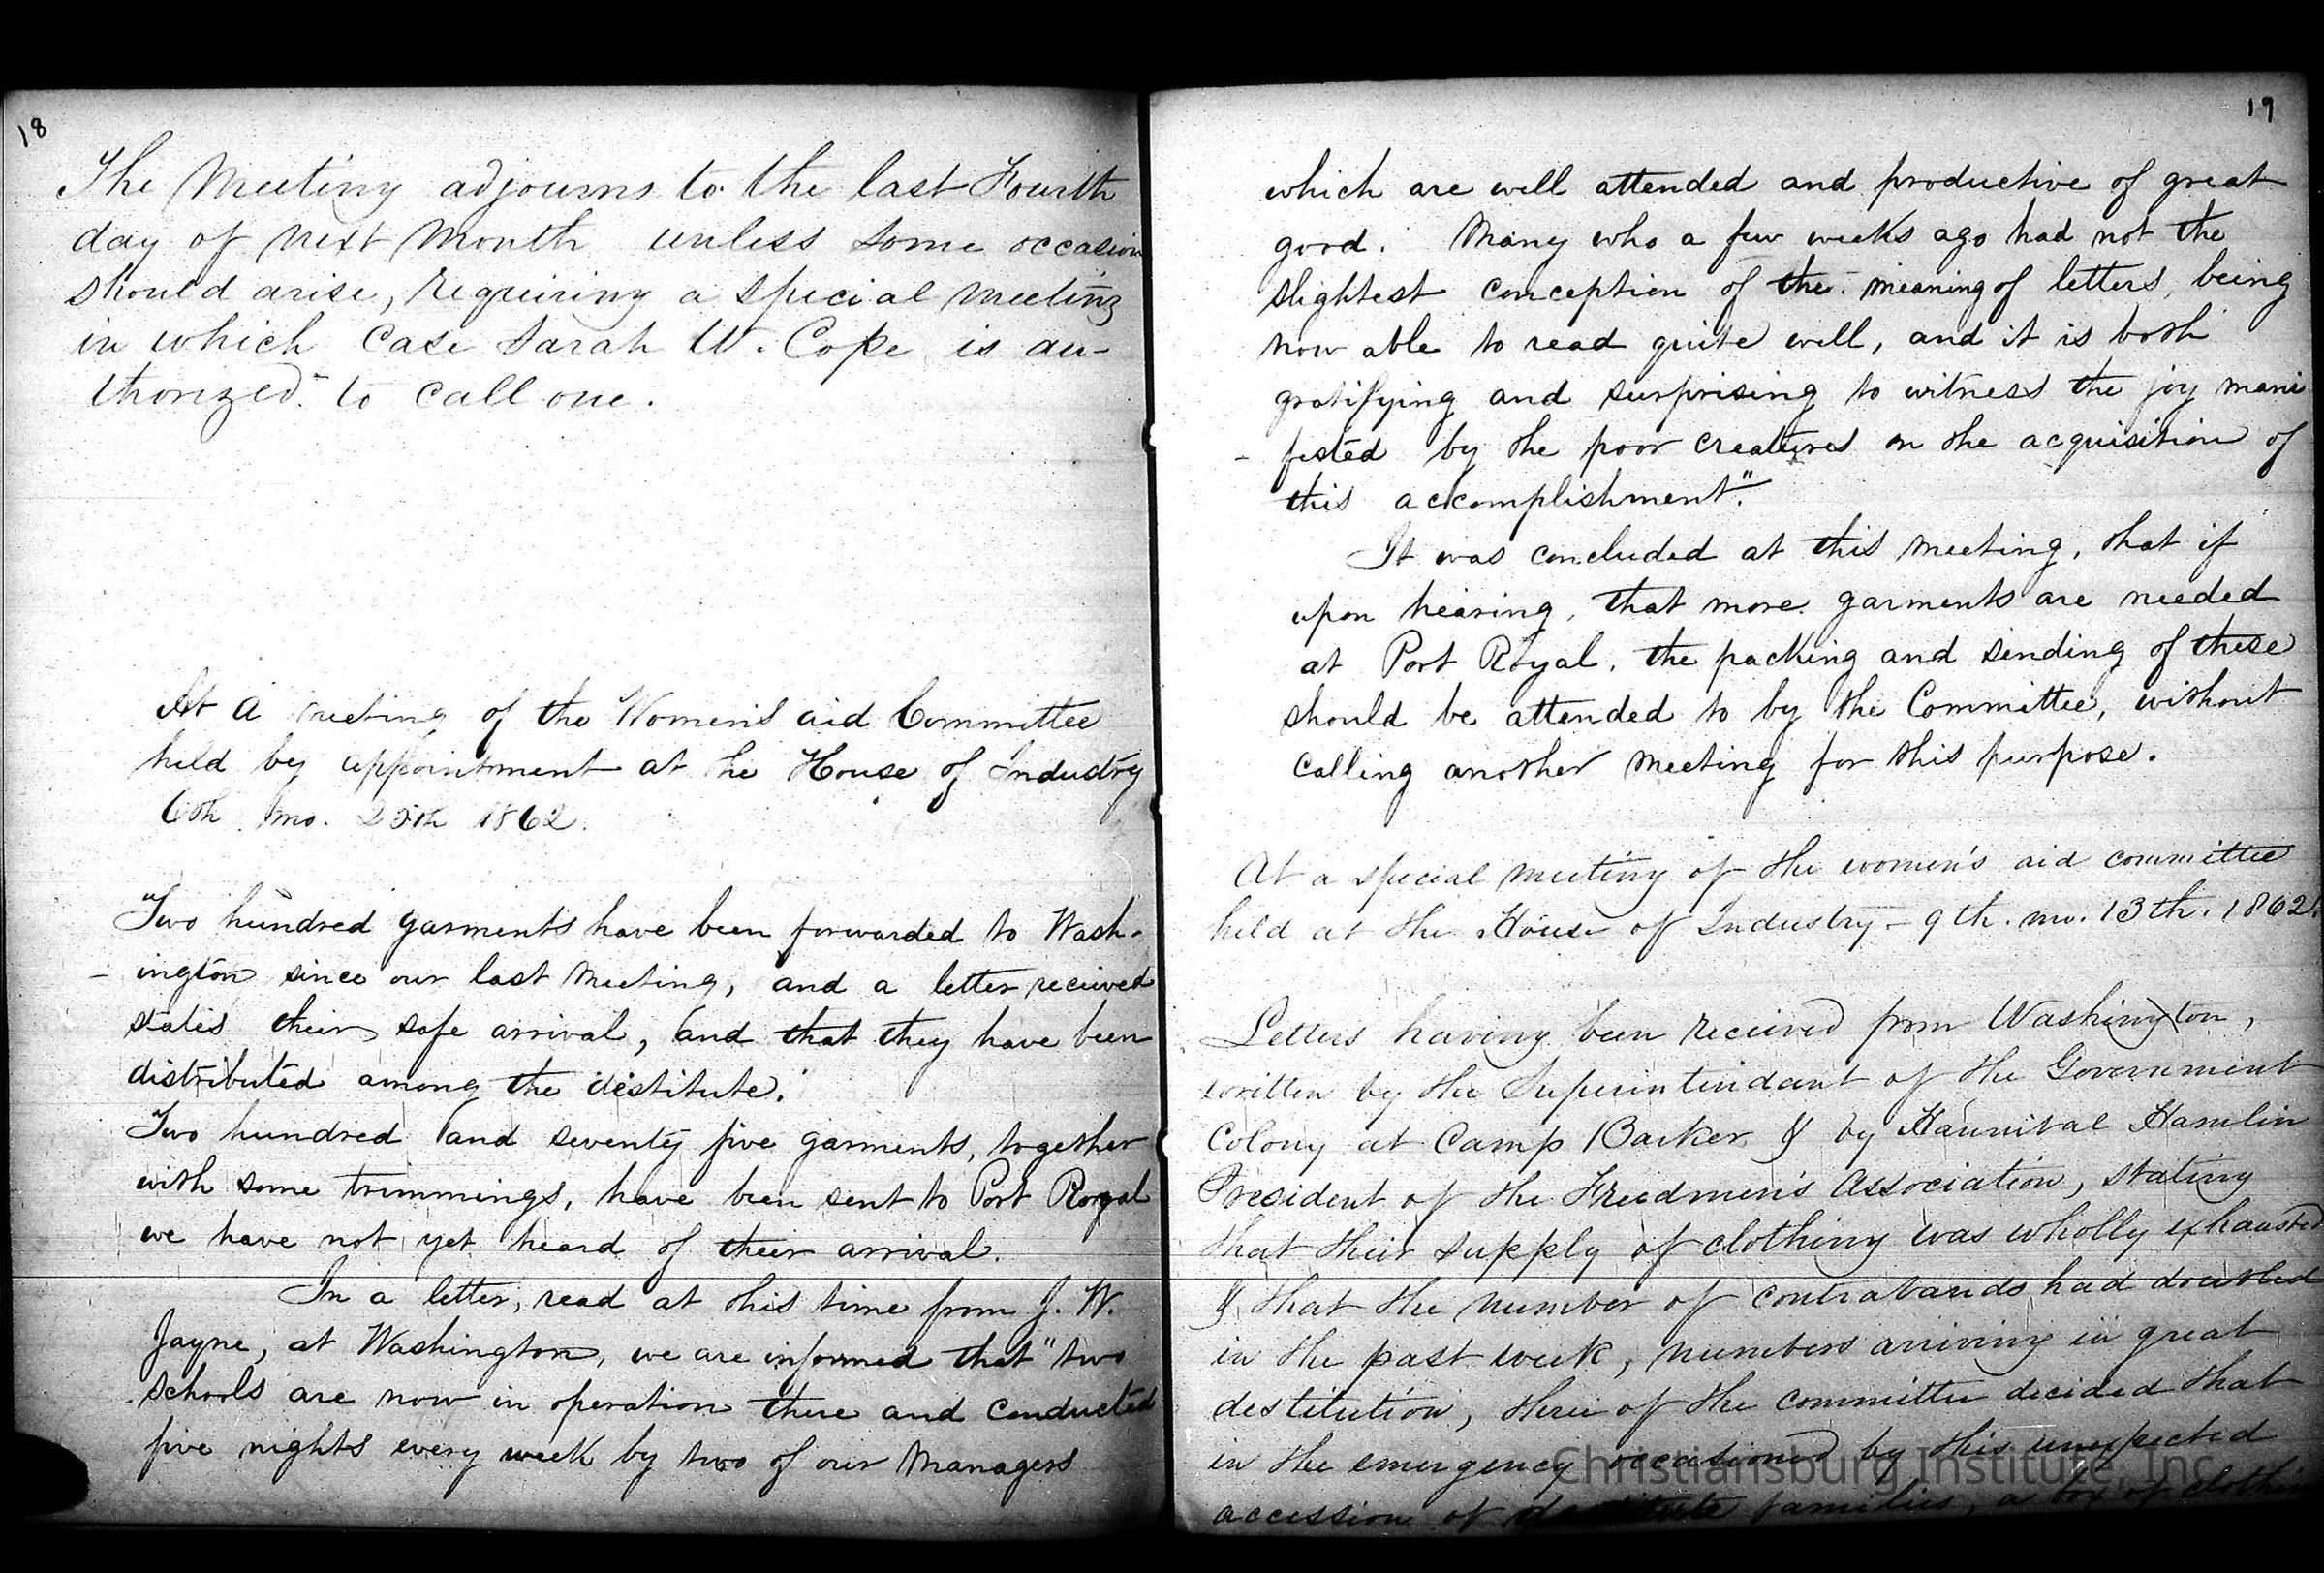 18
The Meeting adjourns to the last Fourth
day of next month unless some occasion
should arise, requiring a special meeting
in which case Sarah W. Cope is au-
thorized to call one.
At a meeting of the Women's aid Committee
held by appointment at the House of Industry
6th mo. 25th 1862.
Two hundred garments have been forwarded to Wash-
- ington since our last meeting, and a letter received
states their safe arrival, and that they have been
distributed among the destitute.
Two hundred and seventy five garments, together
with some trimmings, have been sent to Port Royal
we have not yet heard of their arrival.
In a letter, read at this time from J. W.
Jayne, at Washington, we are informed that "two
schools are now in operation there and conducted
five nights every week by two of our Managers
19
which are well attended and productive of great
good. Many who a few weeks ago had not the
slightest conception of the meaning of letters, being
now able to read quite well, and it is both
gratifying and surprising to witness the joy mani
- fested by the poor creatures on the acquisition of
this accomplishment".
It was concluded at this meeting, that if
upon hearing, that more garments are needed
at Port Royal, the packing and sending of these
should be attended to by the Committee, without
calling another meeting for this purpose.
At a special meeting of the women's aid committee
held at the House of Industry - 9th. mo. 13th. 1862.
Letters having been received from Washington,
written by the Superintendant of the Government
Colony at Camp Barker & by Hannibal Hamlin
President of the Freedmen's Association, stating
that their supply of clothing was wholly exhausted
& that the number of contrabands had doubled
in the past week, numbers arriving in great
destitution, three of the committee decided that
in the emergency occasioned by this unexpected
accession of destitute families, a box of clothing
Christiansburg Institute, Inc.